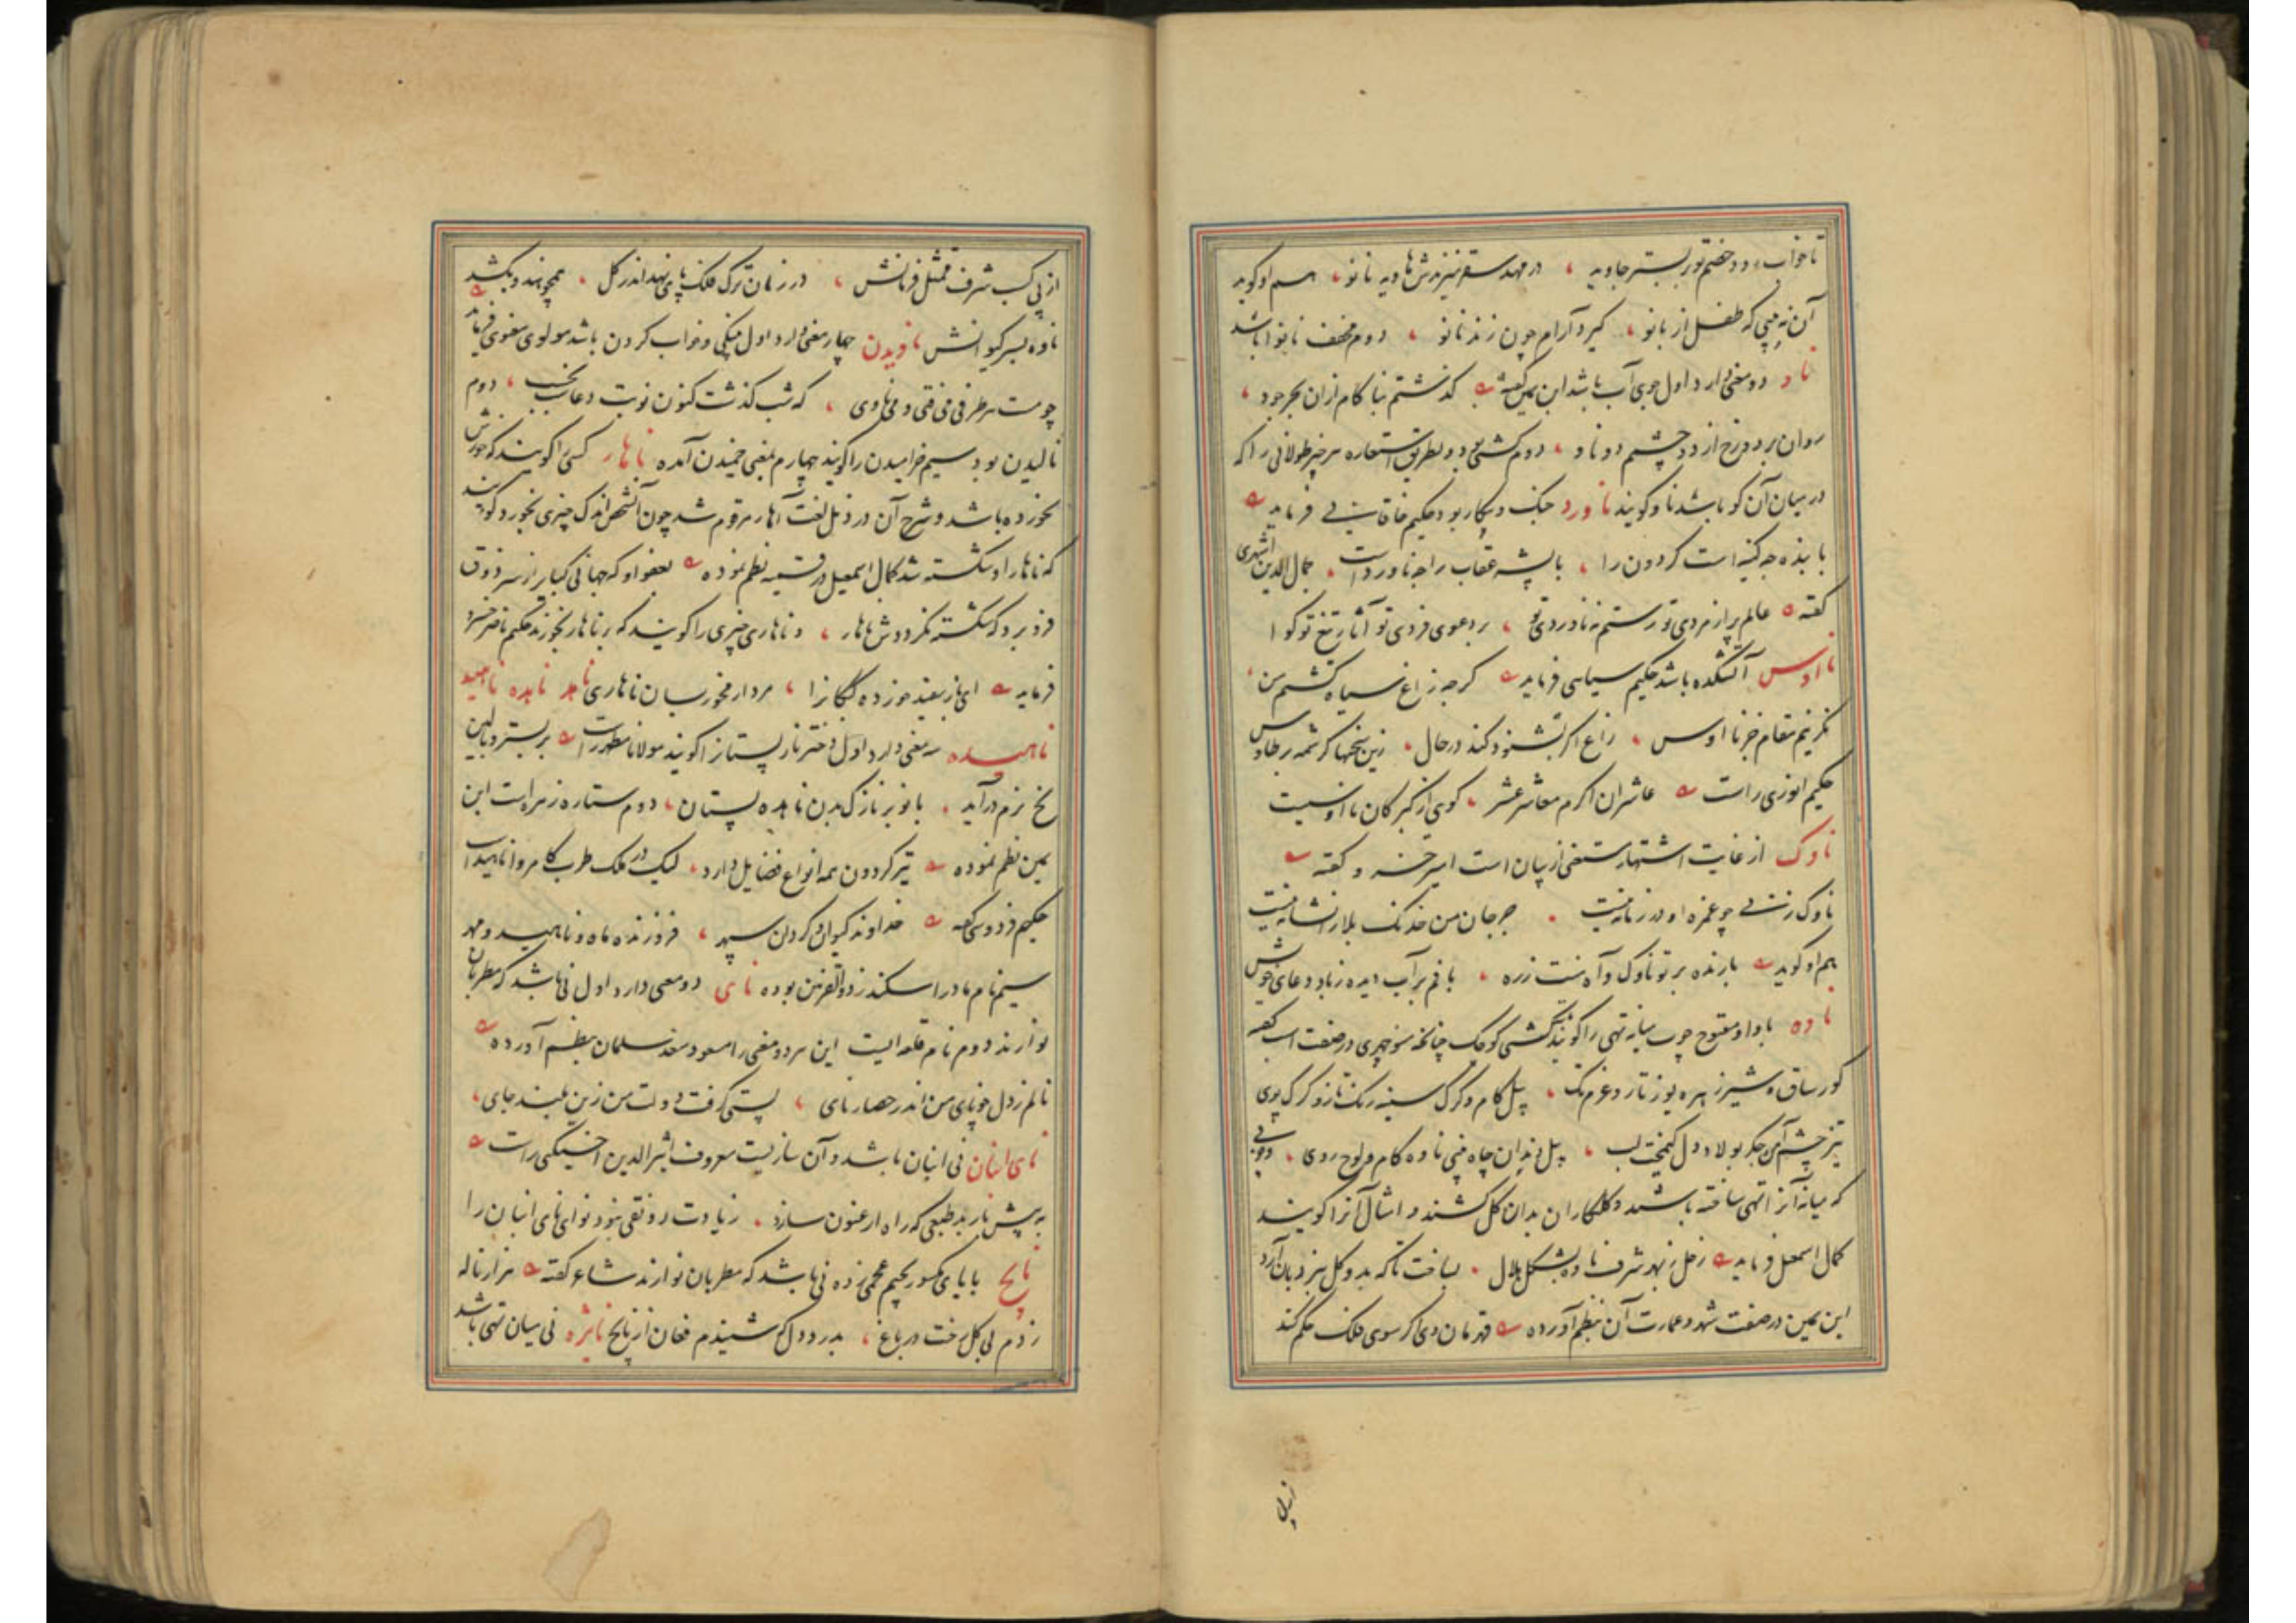 تا خواب دو خصم تو بر بستر جاوید ، در مهد سقر نیز بدش هاویه نانو ، هم او گوید
آن نه‌بینی که طفل از بانو ، گیرد آرام چون زند نانو ، دوم مخفف نانوا باشد
ناو دو معنی دارد اول جوی آب باشد ابن یمین گفته گذشتم نبا کام ازان بحر جود ،
روان بر دو رخ از دو چشمم دو ناو ، دوم کشتی بود و بطریق استعاره هر چیز طولانی را که
در میان آن گو باشد ناو گویند ناورد جنگ و پیکار بود حکیم خاقانی فرماید
با بنده چه کینه است گردون را ، با پشه عقاب را چه ناورد است . جمال الدین اشهری
گفته عالم پر از مردی تو رستم نه ناوردی تو ، بر دعوی فردی تو آثار تیغ تو گوا
ناوس آتشکده باشد حکیم سیاسی فرماید گرچه زاغ سیاه کشتم من ،
نگزینم مقام جز ناوس ، زاغ اگر بشنود کند در حال ، زین سخنها کرشمه بر طاوس
حکیم انوری راست عاشران اکرم معاشر عشر ، گوی از کبرکان ناوسیت
ناوک از غایت اشتهار مستغنی از بیان است امیر خسرو گفته
ناوک زنی چو غمزه او در زمانه نیست . جز جان من خدنگ بلا را نشانه نیست
هم او گوید بارنده بر تو ناوک و آه منت زره ، بافم بر آب دیده زباد دعای خویش
ناوه با واو مفتوح چوب میانه تهی را گویند کشتی کوچک چنانچه منوچهری در صفت اسب گفته
گور ساق و شیر زهره یوز تاز و غرم تک ، پیل گام و گرگ سینه رنگ تاز و گرگ پوی
تیز چشم آهن جگر پولاد دل کیمخت لب ، پیل دندان چاه بینی ناوه کام و لوح روی ، دوم چوبی
که میانه آنرا تهی ساخته باشند و گلکاران بدان گل کشند و امثال آنرا گویند
کمال اسمعیل فرماید زحل ز بهر شرف ناوه بشکل هلال . بساخت تا که بدو گل بنردبان آرد
ابن یمین در صفت شهد و عمارت آن بنظم آورده قهرمان وی اگر سوی فلک حکم کند
از پی کسب شرف ممتثل فرمانش ، در زمان ترک فلک پای نهد اندر گل . همچو هندو بکشد
ناوه بسر کیوانش ناویدن چهار معنی دارد اول پینکی و خواب کردن باشد مولوی معنوی فرماید
چو مست هر طرفی می فتی و می ناوی ، که شب گذشت کنون نوبت دعاست مخسب ، دوم
نالیدن بود سیم خرامیدن را گویند چهارم بمعنی خمیدن آمده ناهار کسی را گویند که خورش
نخورده باشد و شرح آن در ذیل لغت آهار مرقوم شد چون آن شخص اندک چیزی بخورد گویند
که ناهار او شکسته شد کمال اسمعیل در قسمیه نظم نموده بعفو او که جهانی کبایر از سر ذوق
فرو برد که شکسته نگرددش ناهار ، و ناهاری چیزی را گویند که بر ناهار بخورند حکیم ناصر خسرو
فرماید ای از بعید خوزده ، مردار مخور بسان ناهاری ناهد ناهده ناهید
ناهیده سه معنی دارد اول دختر نار پستانرا گویند مولانا مطهر راست بر بستر و بالین
نخ نرم درآید . بانو بر نازک بدن ناهده پستان ، دوم ستاره زهره است ابن
یمین نظم نموده تیر گردون همه انواع فضایل دارد ، لیک در ملک طرب کامروا ناهید است
حکیم فردوسی گفته خداوند کیوان و گردان سپهر ، فروزنده ماه و ناهید و مهر
سیم نام مادر اسکندر ذوالقرنین بوده نای دو معنی دارد اول نی باشد که مطربان
نوازند دوم نام قلعه ایست این هر دو معنی را مسعود سعد سلمان بنظم آورده
نالم ز دل چو نای من اندر حصار نای ، پستی گرفت دولت من زین بلند جای ،
نای انبان نی انبان باشد و آن سازیست معروف اثیرالدین اخسیکتی راست
به پیش باربد طبعی که راه ارغنون سازد . زیادت رونقی نبود نوای نای انبان را
نایچ با یای مکسور بجیم عجمی زده نی باشد که مطربان نوازند شاعر گفته هزار ناله
زدم بی گل رخت در باغ ، بدرد دل که شنیدم فغان از نایچ نایژه نی میان تهی باشد